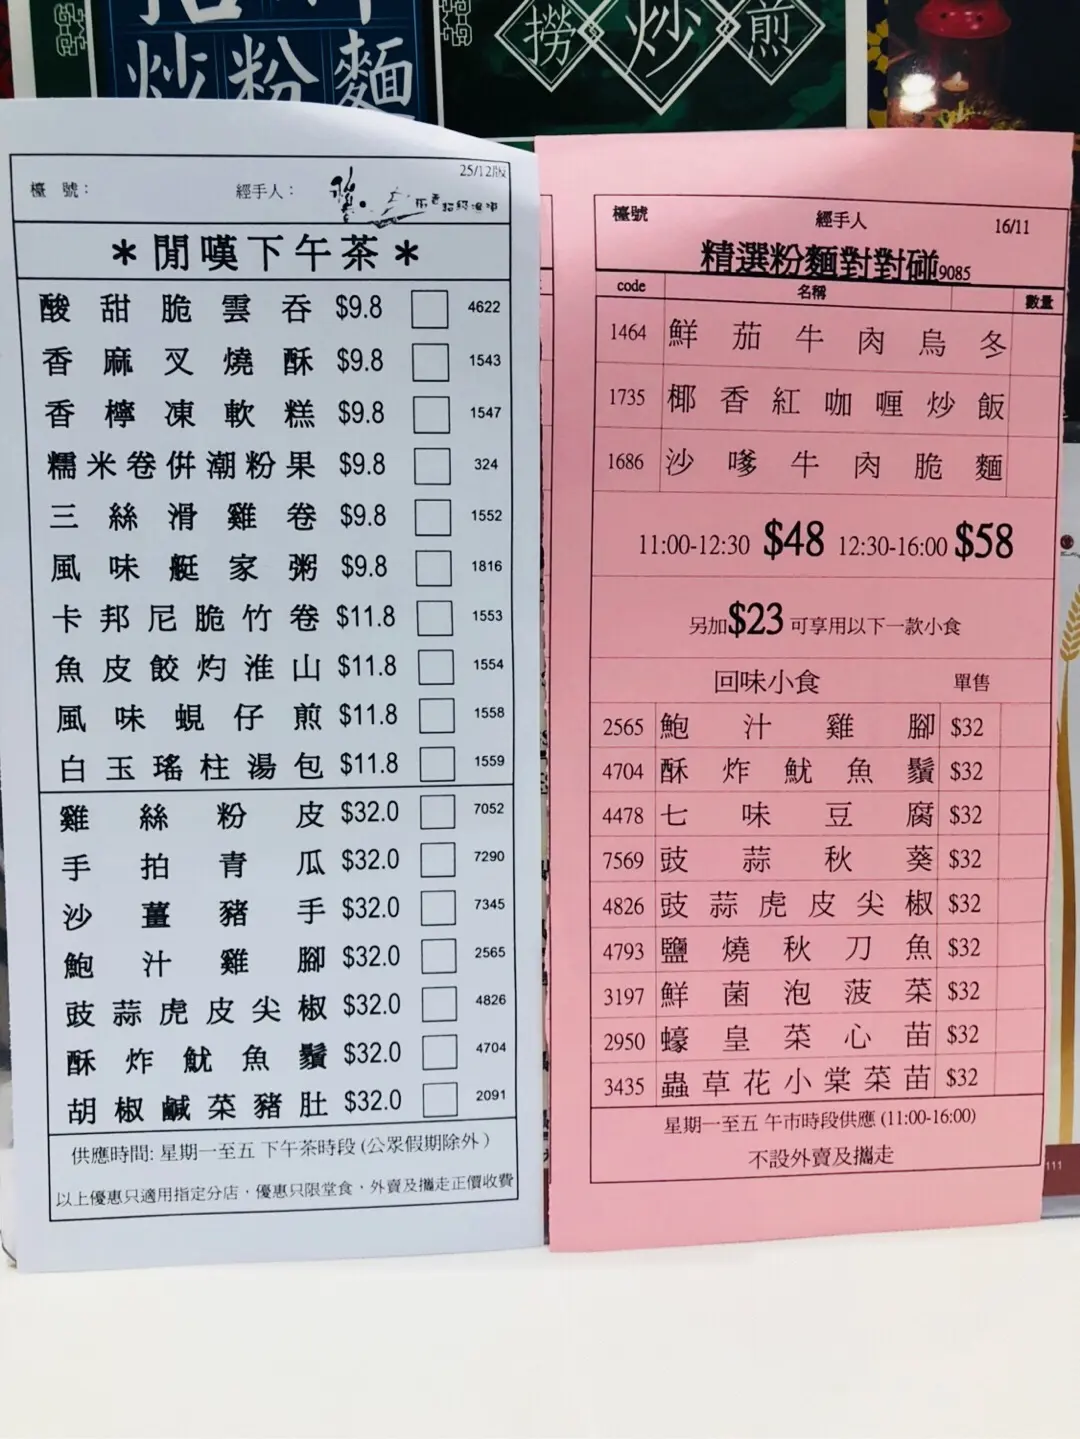 炒粉麵
撈 炒 煎
25/12版
檯 號：
經手人：
＊閒嘆下午茶＊
酸甜脆雲吞 $9.8 4622
香麻叉燒酥 $9.8 1543
香檸凍軟糕 $9.8 1547
糯米卷併潮粉果 $9.8 324
三絲滑雞卷 $9.8 1552
風味艇家粥 $9.8 1816
卡邦尼脆竹卷 $11.8 1553
魚皮餃灼淮山 $11.8 1554
風味蜆仔煎 $11.8 1558
白玉瑤柱湯包 $11.8 1559
雞絲粉皮 $32.0 7052
手拍青瓜 $32.0 7290
沙薑豬手 $32.0 7345
鮑汁雞腳 $32.0 2565
豉蒜虎皮尖椒 $32.0 4826
酥炸魷魚鬚 $32.0 4704
胡椒鹹菜豬肚 $32.0 2091
供應時間: 星期一至五 下午茶時段 (公眾假期除外)
以上優惠只適用指定分店，優惠只限堂食，外賣及攜走正價收費
檯號 經手人 16/11
精選粉麵對對碰9085
code 名稱 數量
1464 鮮茄牛肉烏冬
1735 椰香紅咖喱炒飯
1686 沙嗲牛肉脆麵
11:00-12:30 $48 12:30-16:00 $58
另加$23 可享用以下一款小食
回味小食 單售
2565 鮑汁雞腳 $32
4704 酥炸魷魚鬚 $32
4478 七味豆腐 $32
7569 豉蒜秋葵 $32
4826 豉蒜虎皮尖椒 $32
4793 鹽燒秋刀魚 $32
3197 鮮菌泡菠菜 $32
2950 蠔皇菜心苗 $32
3435 蟲草花小棠菜苗 $32
星期一至五 午市時段供應 (11:00-16:00)
不設外賣及攜走
111